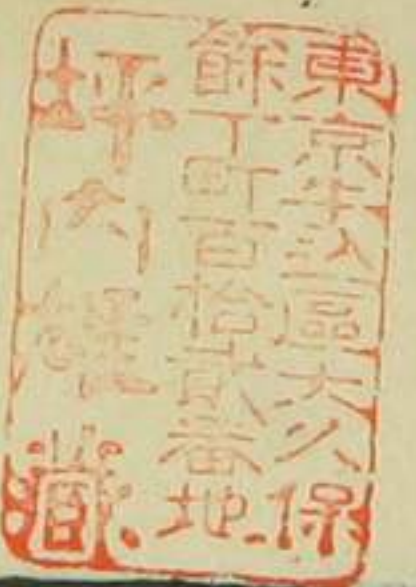 東京牛込區大久保
餘丁町百拾貳番地
坪內雄藏